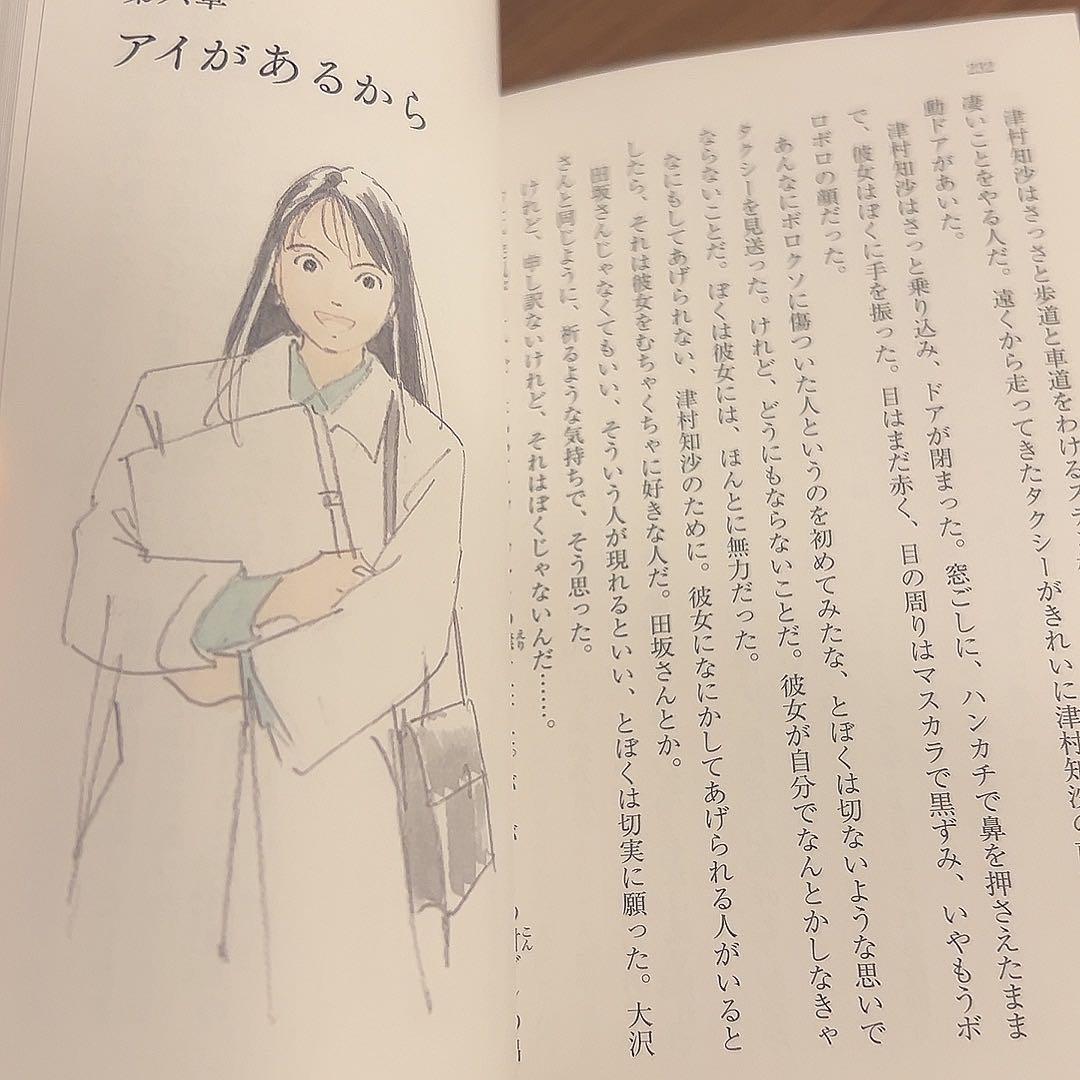 232
津村知沙はさっさと歩道と車道をわける
凄いことをやる人だ。遠くから走ってきたタクシーがきれいに津村知沙の
動ドアがあいた。
津村知沙はさっと乗り込み、ドアが閉まった。窓ごしに、ハンカチで鼻を押さえたまま
で、彼女はぼくに手を振った。目はまだ赤く、目の周りはマスカラで黒ずみ、いやもうボ
ロボロの顔だった。
あんなにボロクソに傷ついた人というのを初めてみたな、とぼくは切ないような思いで
タクシーを見送った。けれど、どうにもならないことだ。彼女が自分でなんとかしなきゃ
ならないことだ。ぼくは彼女には、ほんとに無力だった。
なにもしてあげられない、津村知沙のために。彼女になにかしてあげられる人がいると
したら、それは彼女をむちゃくちゃに好きな人だ。田坂さんとか。
田坂さんじゃなくてもいい、そういう人が現れるといい、とぼくは切実に願った。大沢
さんと同じように、祈るような気持ちで、そう思った。
けれど、申し訳ないけれど、それはぼくじゃないんだ……。
アイがあるから